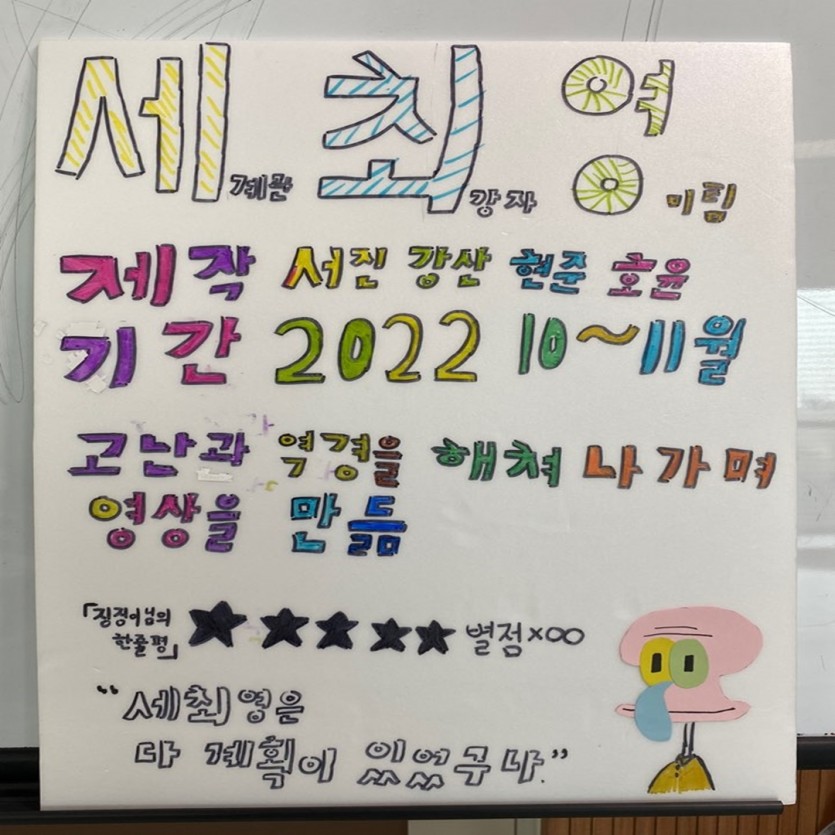 세계관 최강자 영미팀
제작 서진 강산 현준 호윤
기간 2022 10~11월
고난과 역경을 해쳐 나가며
영상을 만듦
「질징어님의
한줄평」 ★★★★★ 별점×∞
"세최영은
다 계획이 있었구나."